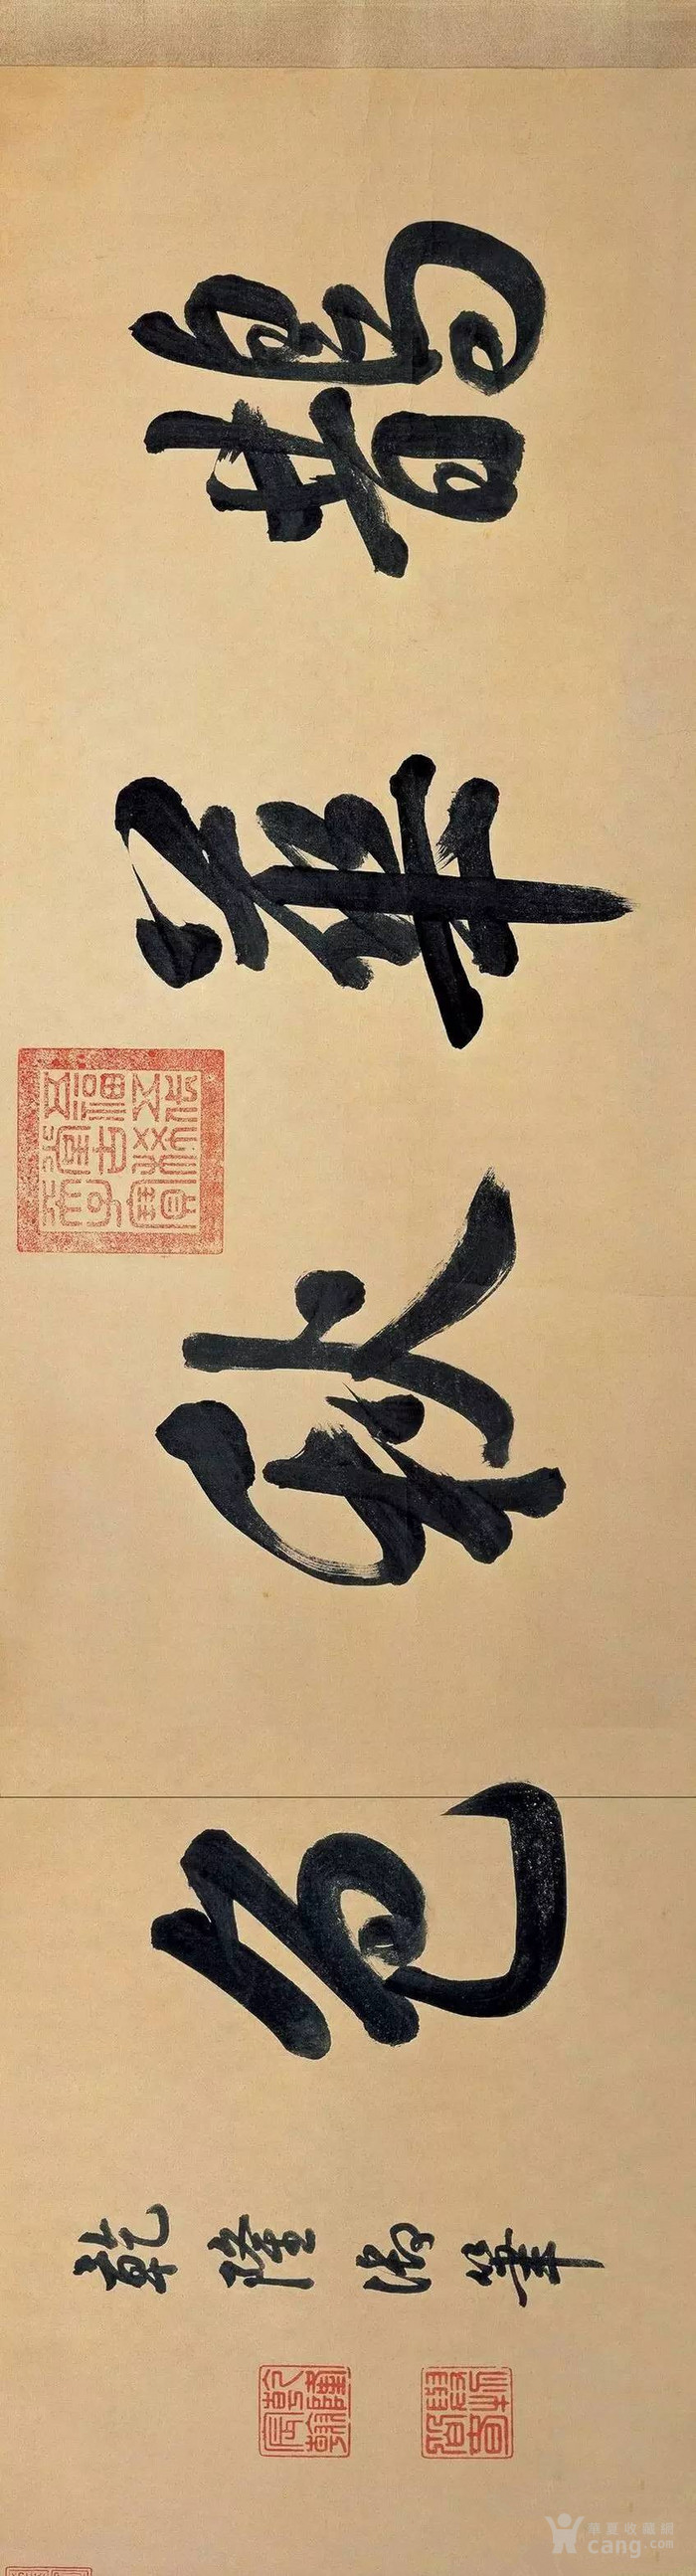 鵲華秋色
乾隆御筆
華夏收藏網
cang.com